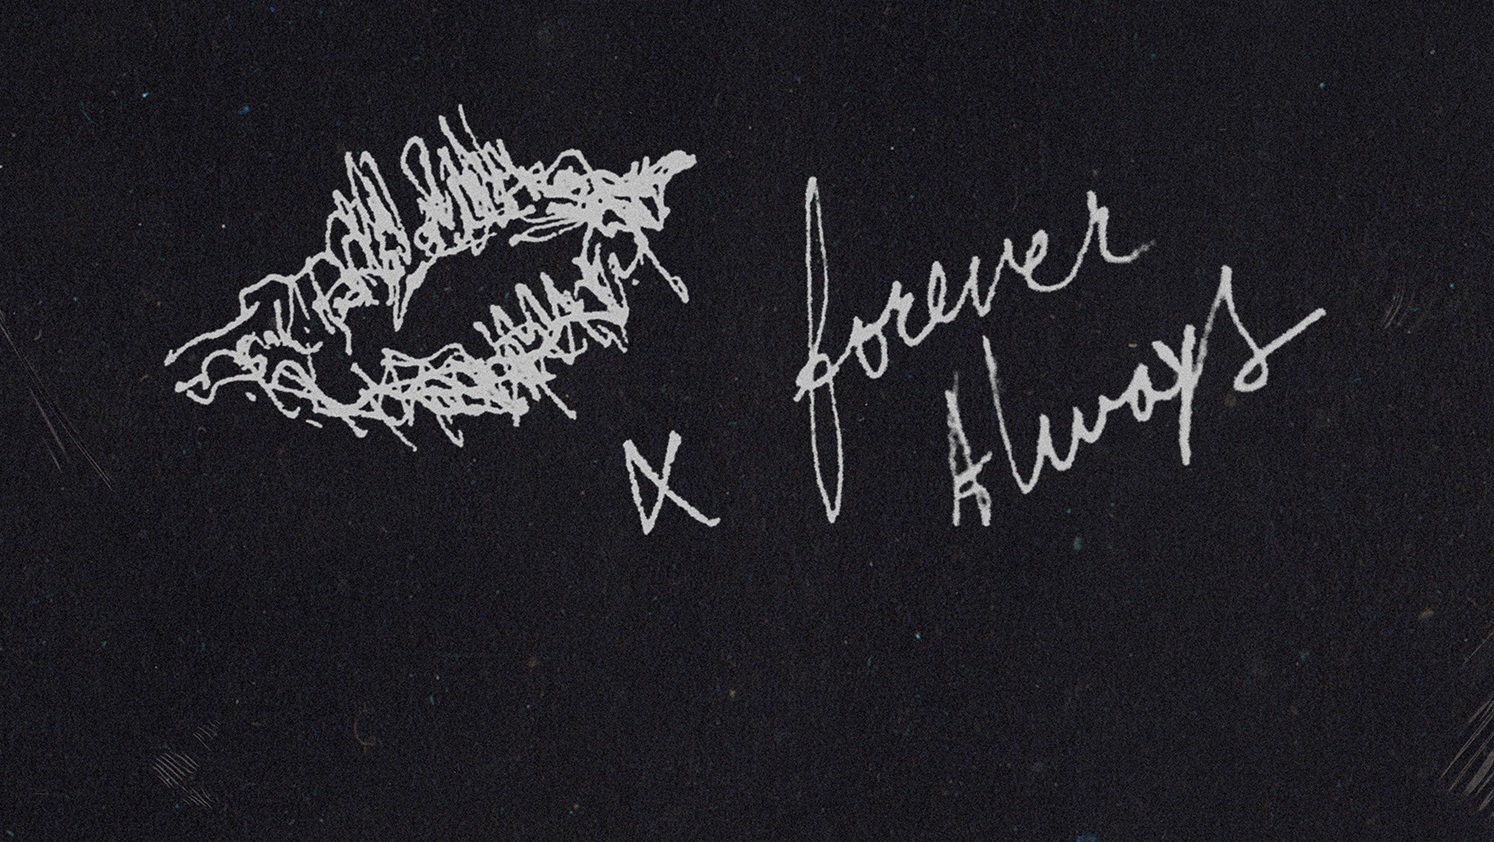 x
forever
Always